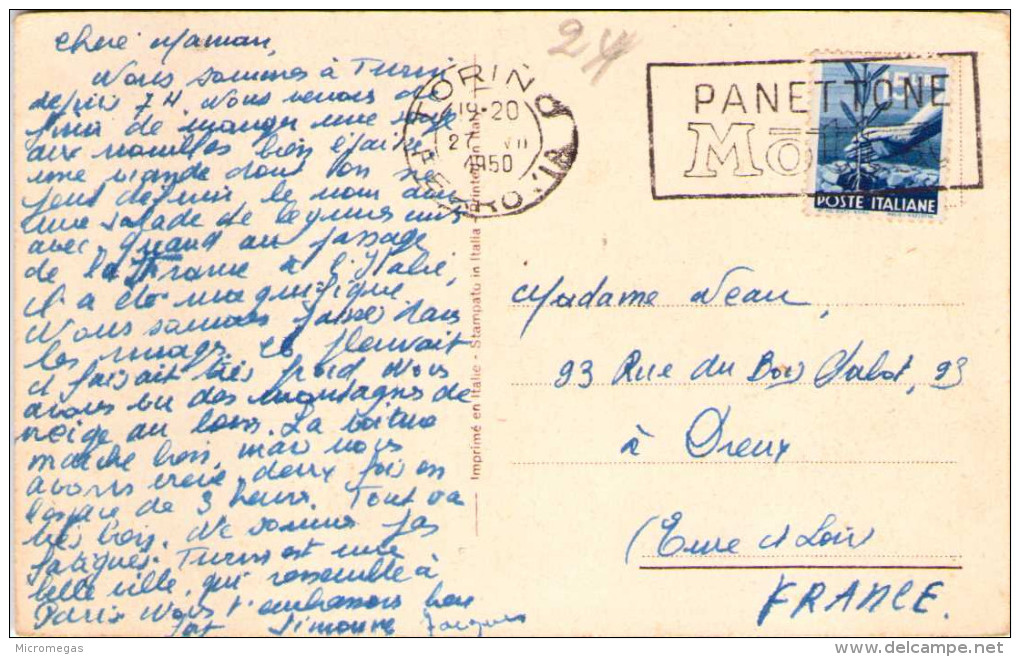 Chère Maman,
Nous sommes à Turin
depuis 7H. Nous venons de
finir de manger une
aux nouilles bien
une viande dont l'on ne
peut définir le nom
une salade de légumes
avec. Quand au passage
de la France à l'Italie,
il a été magnifique.
Nous sommes passés dans
les nuages, il pleuvait
il faisait très froid. Nous
avons vu des montagnes de
neige au loin. La voiture
marche bien, mais nous
avons crevé deux fois en
l'espace de 3 heures. Tout va
très bien. Ne sommes pas
fatigués. Turin est une
belle ville, qui ressemble à
Paris. Nous t'embrassons bien
fort Simonne Jacques
Imprimé en Italie - Stampatu in Italia
24
TORINO
19-20
27 VII
1950
PANETTONE
POSTE ITALIANE
Madame Neau,
93 Rue du Bois Sabot, 93
à Dreux
(Eure et Loir
FRANCE.
Micromegas
www.delcampe.net